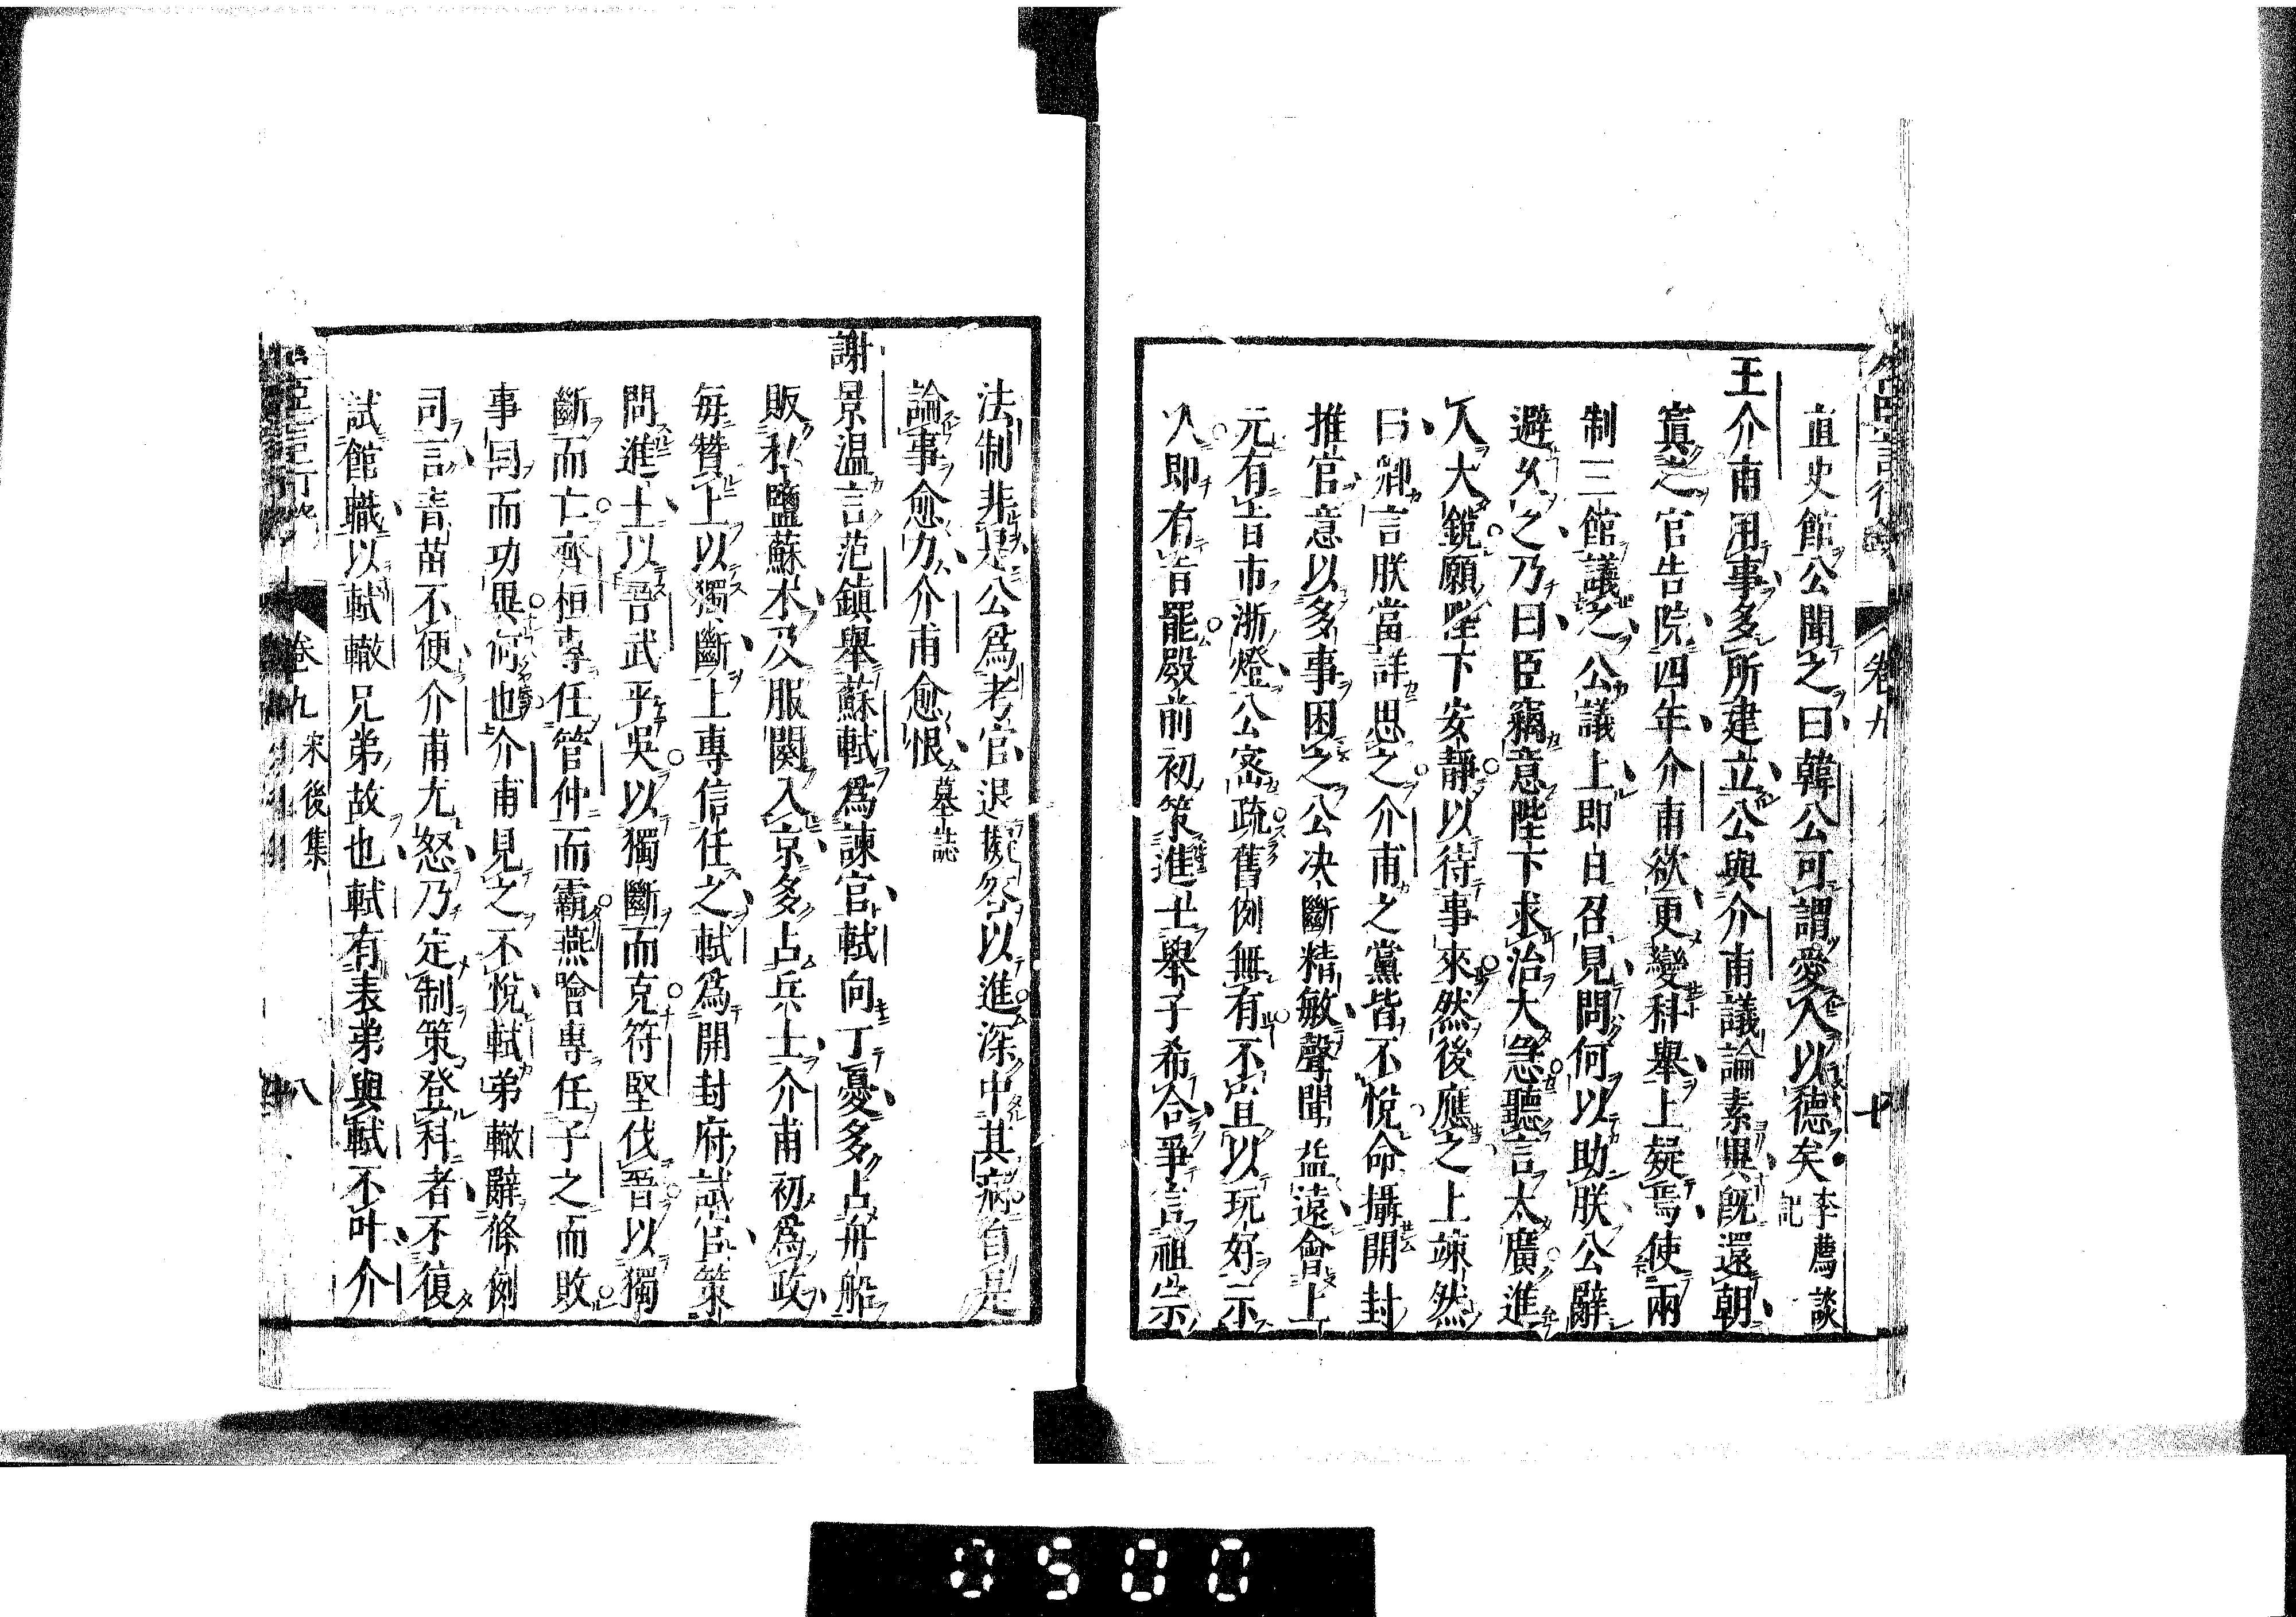 直史館公聞之曰韓公可謂愛人以德矣李廌談記
王介甫用事多所建立公與介甫議論素異既還朝
寘之官告院四年介甫欲更變科舉上疑焉使兩
制三館議之公議上即日召見問何以助朕公辭
避久之乃曰臣竊意陛下求治太急聽言太廣進
人大銳願陛下安靜以待事來然後應之上竦然
曰卿言朕當詳思之介甫之黨皆不悅命攝開封
推官意以多事困之公决斷精敏聲聞益遠會上
元有旨市浙燈公密疏舊例無有不宜以玩好示
人即有旨罷殿前初策進士舉子希合爭言祖宗
卷九
十
法制非是公爲考官退擬答以進深中其病自是
論事愈力介甫愈恨墓誌
謝景温言范鎮舉蘇軾爲諫官軾向丁憂多占舟船
販私鹽蘇木及服闋入京多占兵士介甫初爲政
每贊上以獨斷上專信任之軾爲開封府試官策
問進士以晋武平吳以獨斷而克符堅伐晉以獨
斷而亡齊桓專任管仲而霸燕噲專任子之而敗
事同而功異何也介甫見之不悅軾弟轍辭條例
司言青苗不便介甫尤怒乃定制策登科者不復
試館職以軾轍兄弟故也軾有表弟與軾不叶介
卷九
宋後集
八
0500